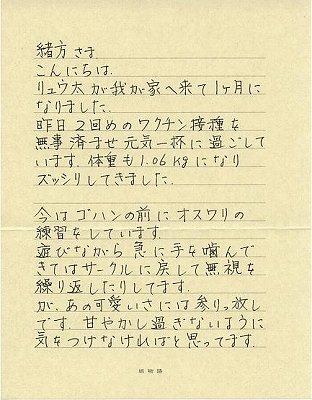 緒方さま
こんにちは.
リュウ太が我が家へ来て1ヶ月に
なりました.
昨日2回めのワクチン接種を
無事済ませ元気一杯に過ごして
います.体重も1.06kgになり
ズッシリしてきました.
今はゴハンの前にオスワリの
練習をしています.
遊びながら急に手を噛んで
きてはサークルに戻して無視を
繰り返したりしてます.
が、あの可愛いさには参りっ放し
です.甘やかし過ぎないように
気をつけなければと思ってます.